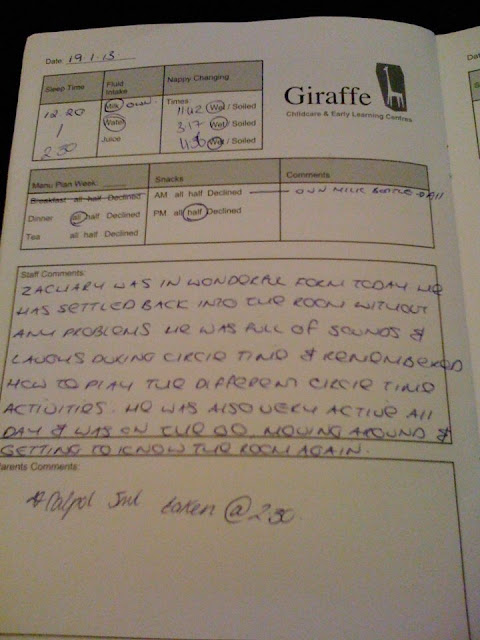 Date: 19.1.13
Giraffe
Childcare & Early Learning Centres
Sleep Time Fluid Intake Nappy Changing
12.20 Milk own Times:
1 Water 11:42 Wet / Soiled
2:30 Juice 3.17 Wet / Soiled
Wet / Soiled
Menu Plan Week: Snacks Comments
Breakfast all half Declined AM all half Declined OWN MILK BOTTLE
Dinner all half Declined PM all half Declined
Tea all half Declined
Staff Comments:
ZACHARY WAS IN WONDERFUL FORM TODAY HE
HAS SETTLED BACK INTO THE ROOM WITHOUT
ANY PROBLEMS HE WAS FULL OF SOUNDS &
LAUGHS DURING CIRCLE TIME & REMEMBERED
HOW TO PLAY THE DIFFERENT CIRCLE TIME
ACTIVITIES. HE WAS ALSO VERY ACTIVE ALL
DAY & WAS ON THE GO MOVING AROUND &
GETTING TO KNOW THE ROOM AGAIN.
arents Comments:
Calpol 5ml taken @ 2.30.